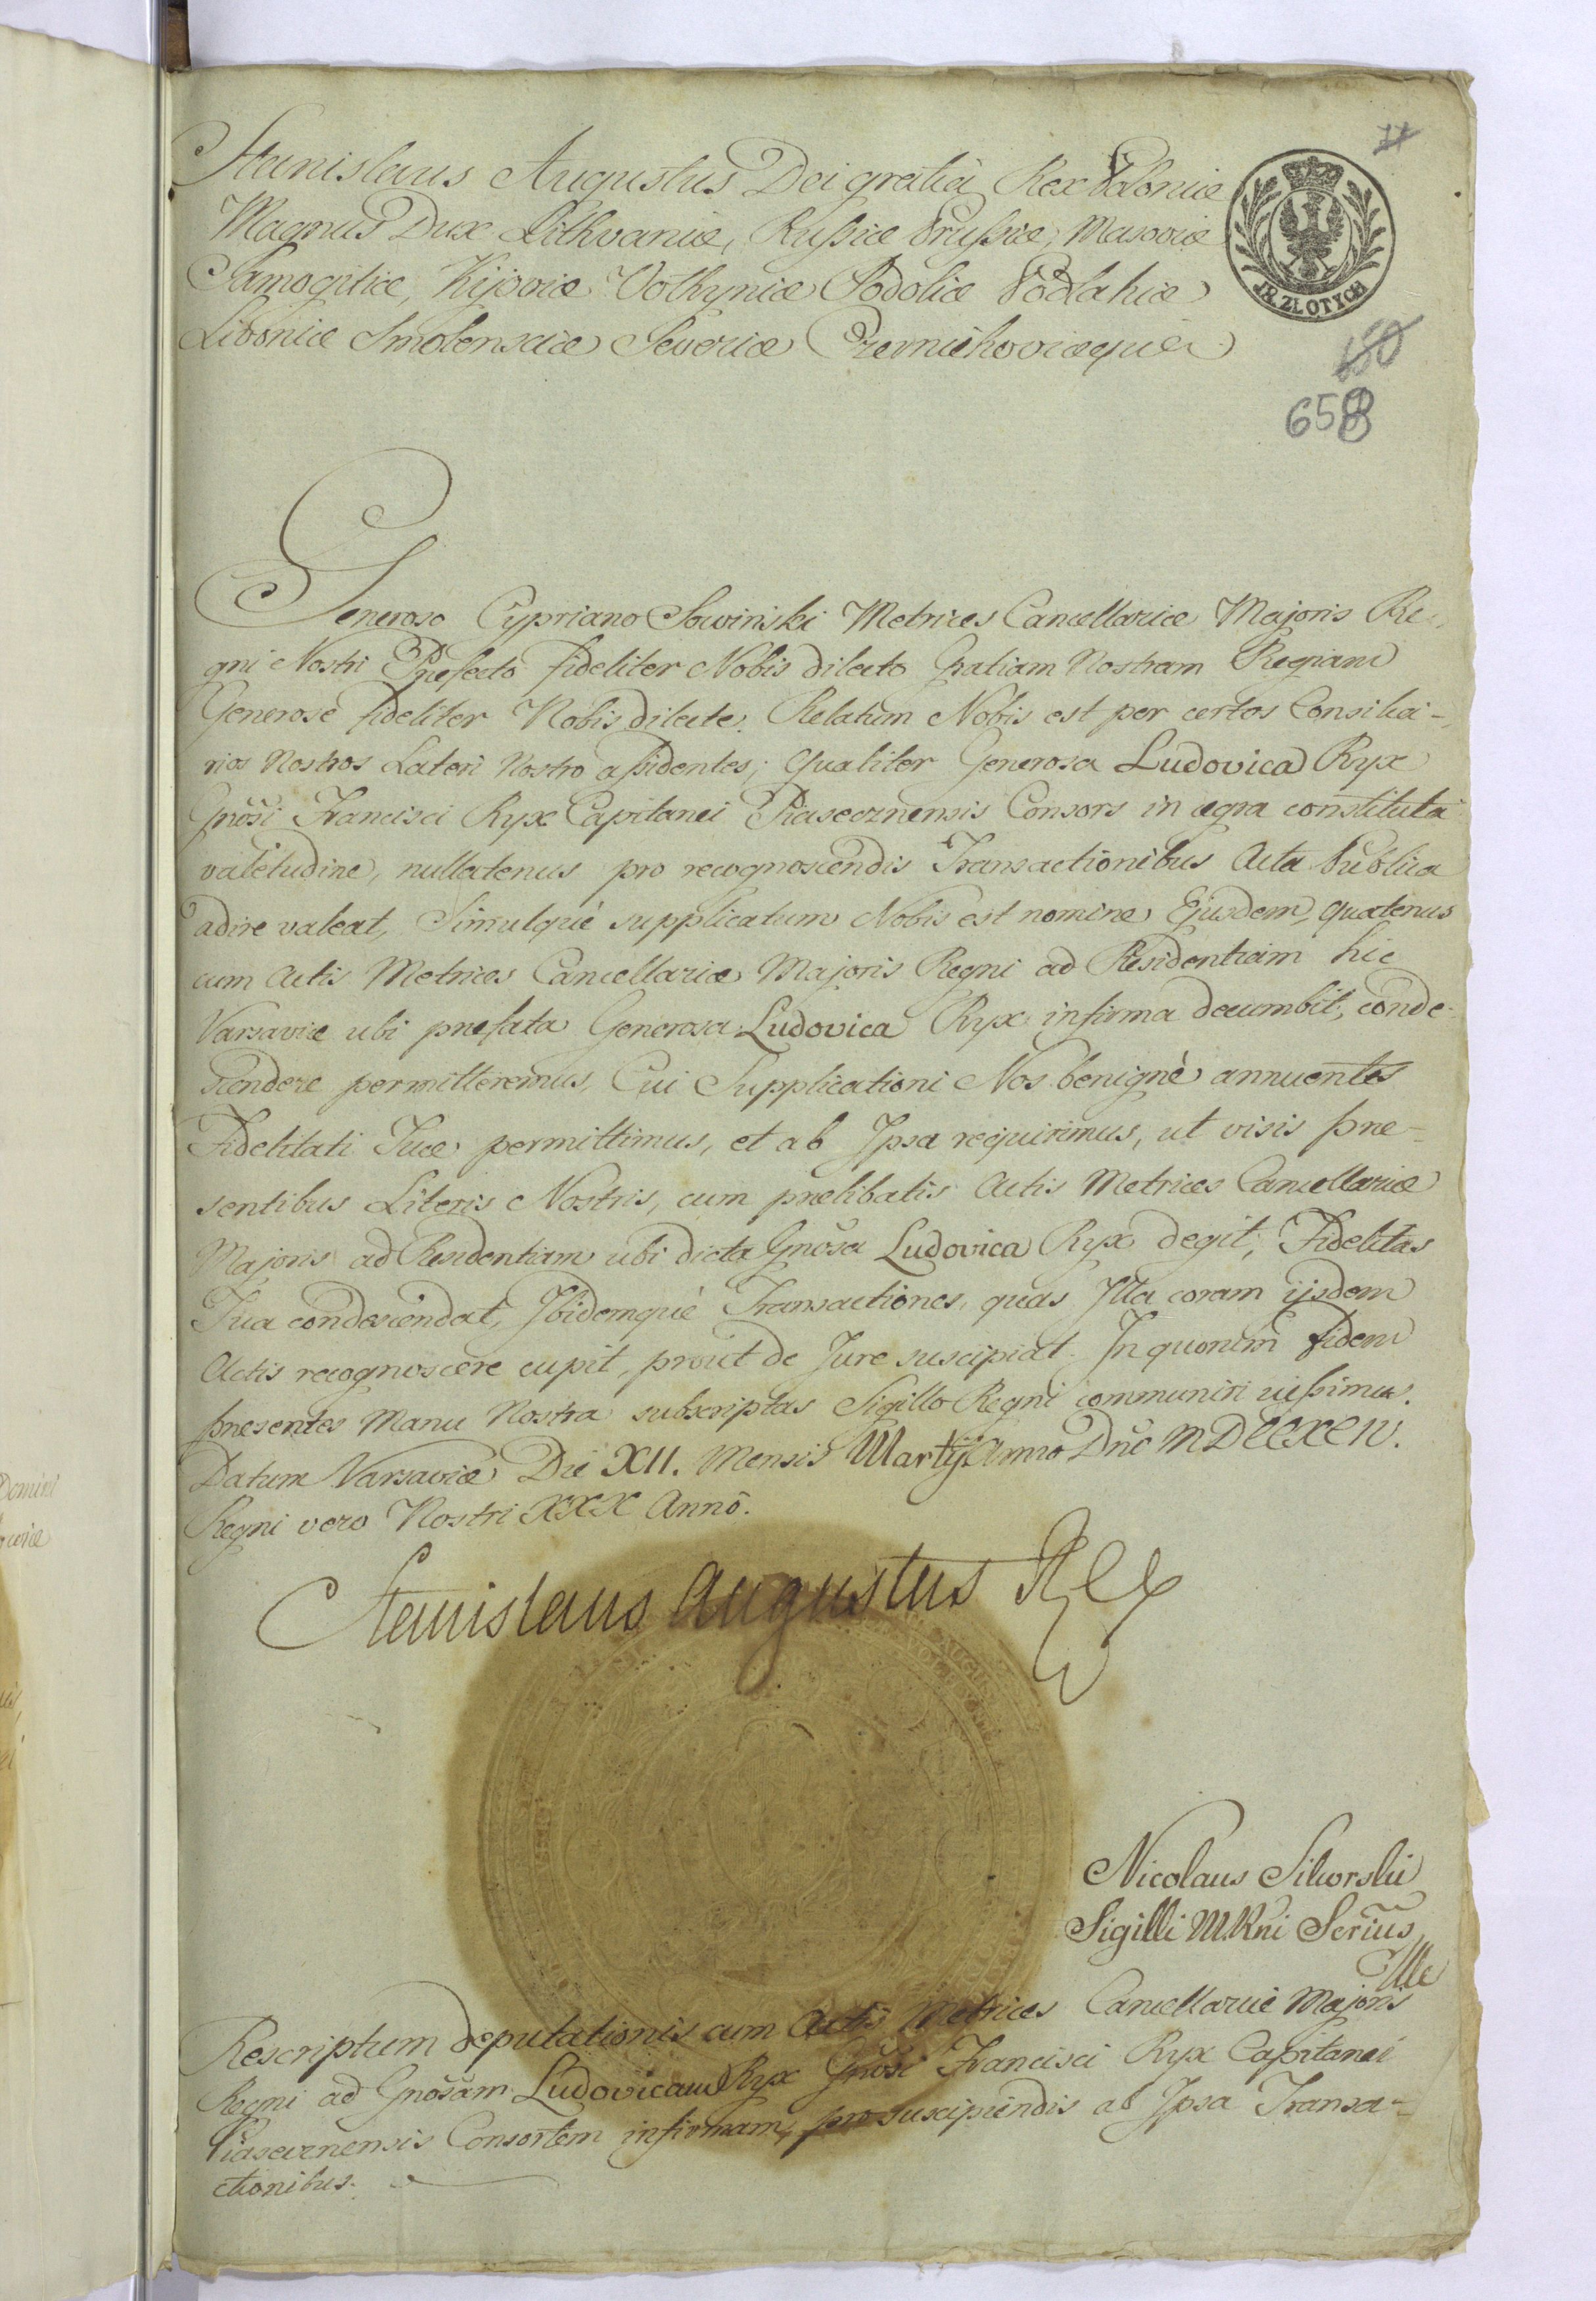 Stanislaus Augustus Dei gratiâ Rex Poloniæ
Magnus Dux Lithvaniæ, Rußiæ Prußiæ, Masoviæ
Samogitiæ, Kijoviæ Volhyniæ Podoliæ Podlahiæ
Livoniæ Smolensciæ Severiæ Czerniehoviæque
ZŁOTYCH
658
Generoso Cypriano Sowinski Metrices Cancellariæ Majoris Re-
gni Nostri Præfecto fideliter Nobis dilecto Gratiam Nostram Regiam
Generose fideliter Nobis dilecte. Relatum Nobis est per certos Consilia-
rios Nostros Lateri Nostro aßidentes; Qualiter Generosa Ludovica Ryx
Gnosi Francisci Ryx Capitanei Piasecznensis Consors in ægra constituta
valetudine, nullatenus pro recognoscendis Transactionibus Acta Publica
adire valeat, Simulque supplicatum Nobis est nomine Ejusdem, quatenus
cum Actis Metrices Cancellariæ Majoris Regni ad Residentiam hic
Varsaviæ ubi præfata Generosa Ludovica Ryx infirma decumbit, conde-
scendere permitteremus, Cui Supplicationi Nos benignè annuentes
Fidelitati Tuæ permittimus, et ab Ipsa requirimus, ut visis præ-
sentibus Literis Nostris, cum prælibatis Actis Metrices Cancellariæ
Majoris ad Residentiam ubi dicta Gnosa Ludovica Ryx degit, Fidelitas
Tua condescendat, Ibidemque Transactiones, quas Illa coram ijsdem
Actis recognoscere cupit, prout de Jure suscipiat. In quorum fidem
præsentes Manu Nostra subscriptas Sigillo Regni communiri iußimus.
Datum Varsaviæ Die XII. Mensis Martij Anno Dni MDCCXCIV.
Regni vero Nostri XXX Anno.
Stanislaus Augustus Rex
Nicolaus Sikorski
Sigilli M.Rni Serius
Rescriptum deputationis cum Actis Metrices Cancellariæ Majoris
Regni ad Gnosam Ludovicam Ryx Gnosi Francisci Ryx Capitanei
Piasecznensis Consortem infirmam, pro suscipiendis ab Ipsa Transa-
ctionibus.